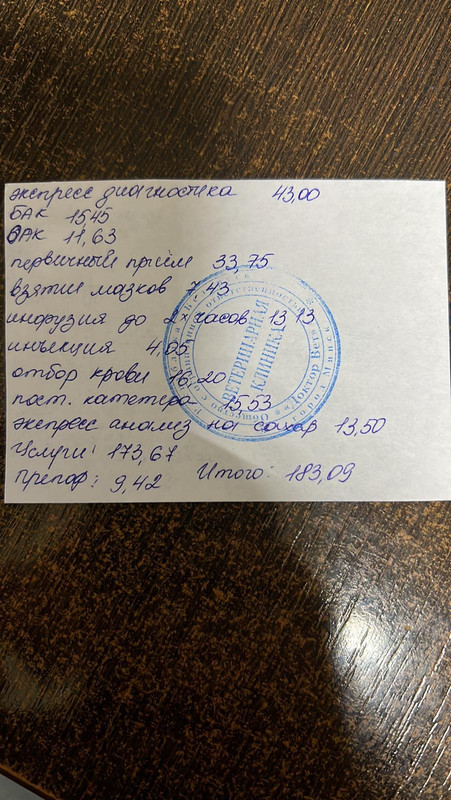 экспресс диагностика 43,00
БАК 15,45
ОАК 11,63
первичный приём 33,75
взятии мазков 7,43
инфузия до 2х часов 13,13
инъекция 4,05
отбор крови 16,20
пост. катетера 15,53
экспресс анализ на сахар 13,50
Услуги: 173,67
Препар: 9,42 Итого: 183,09
ВЕТЕРИНАРНАЯ
КЛИНИКА
Доктор Вет